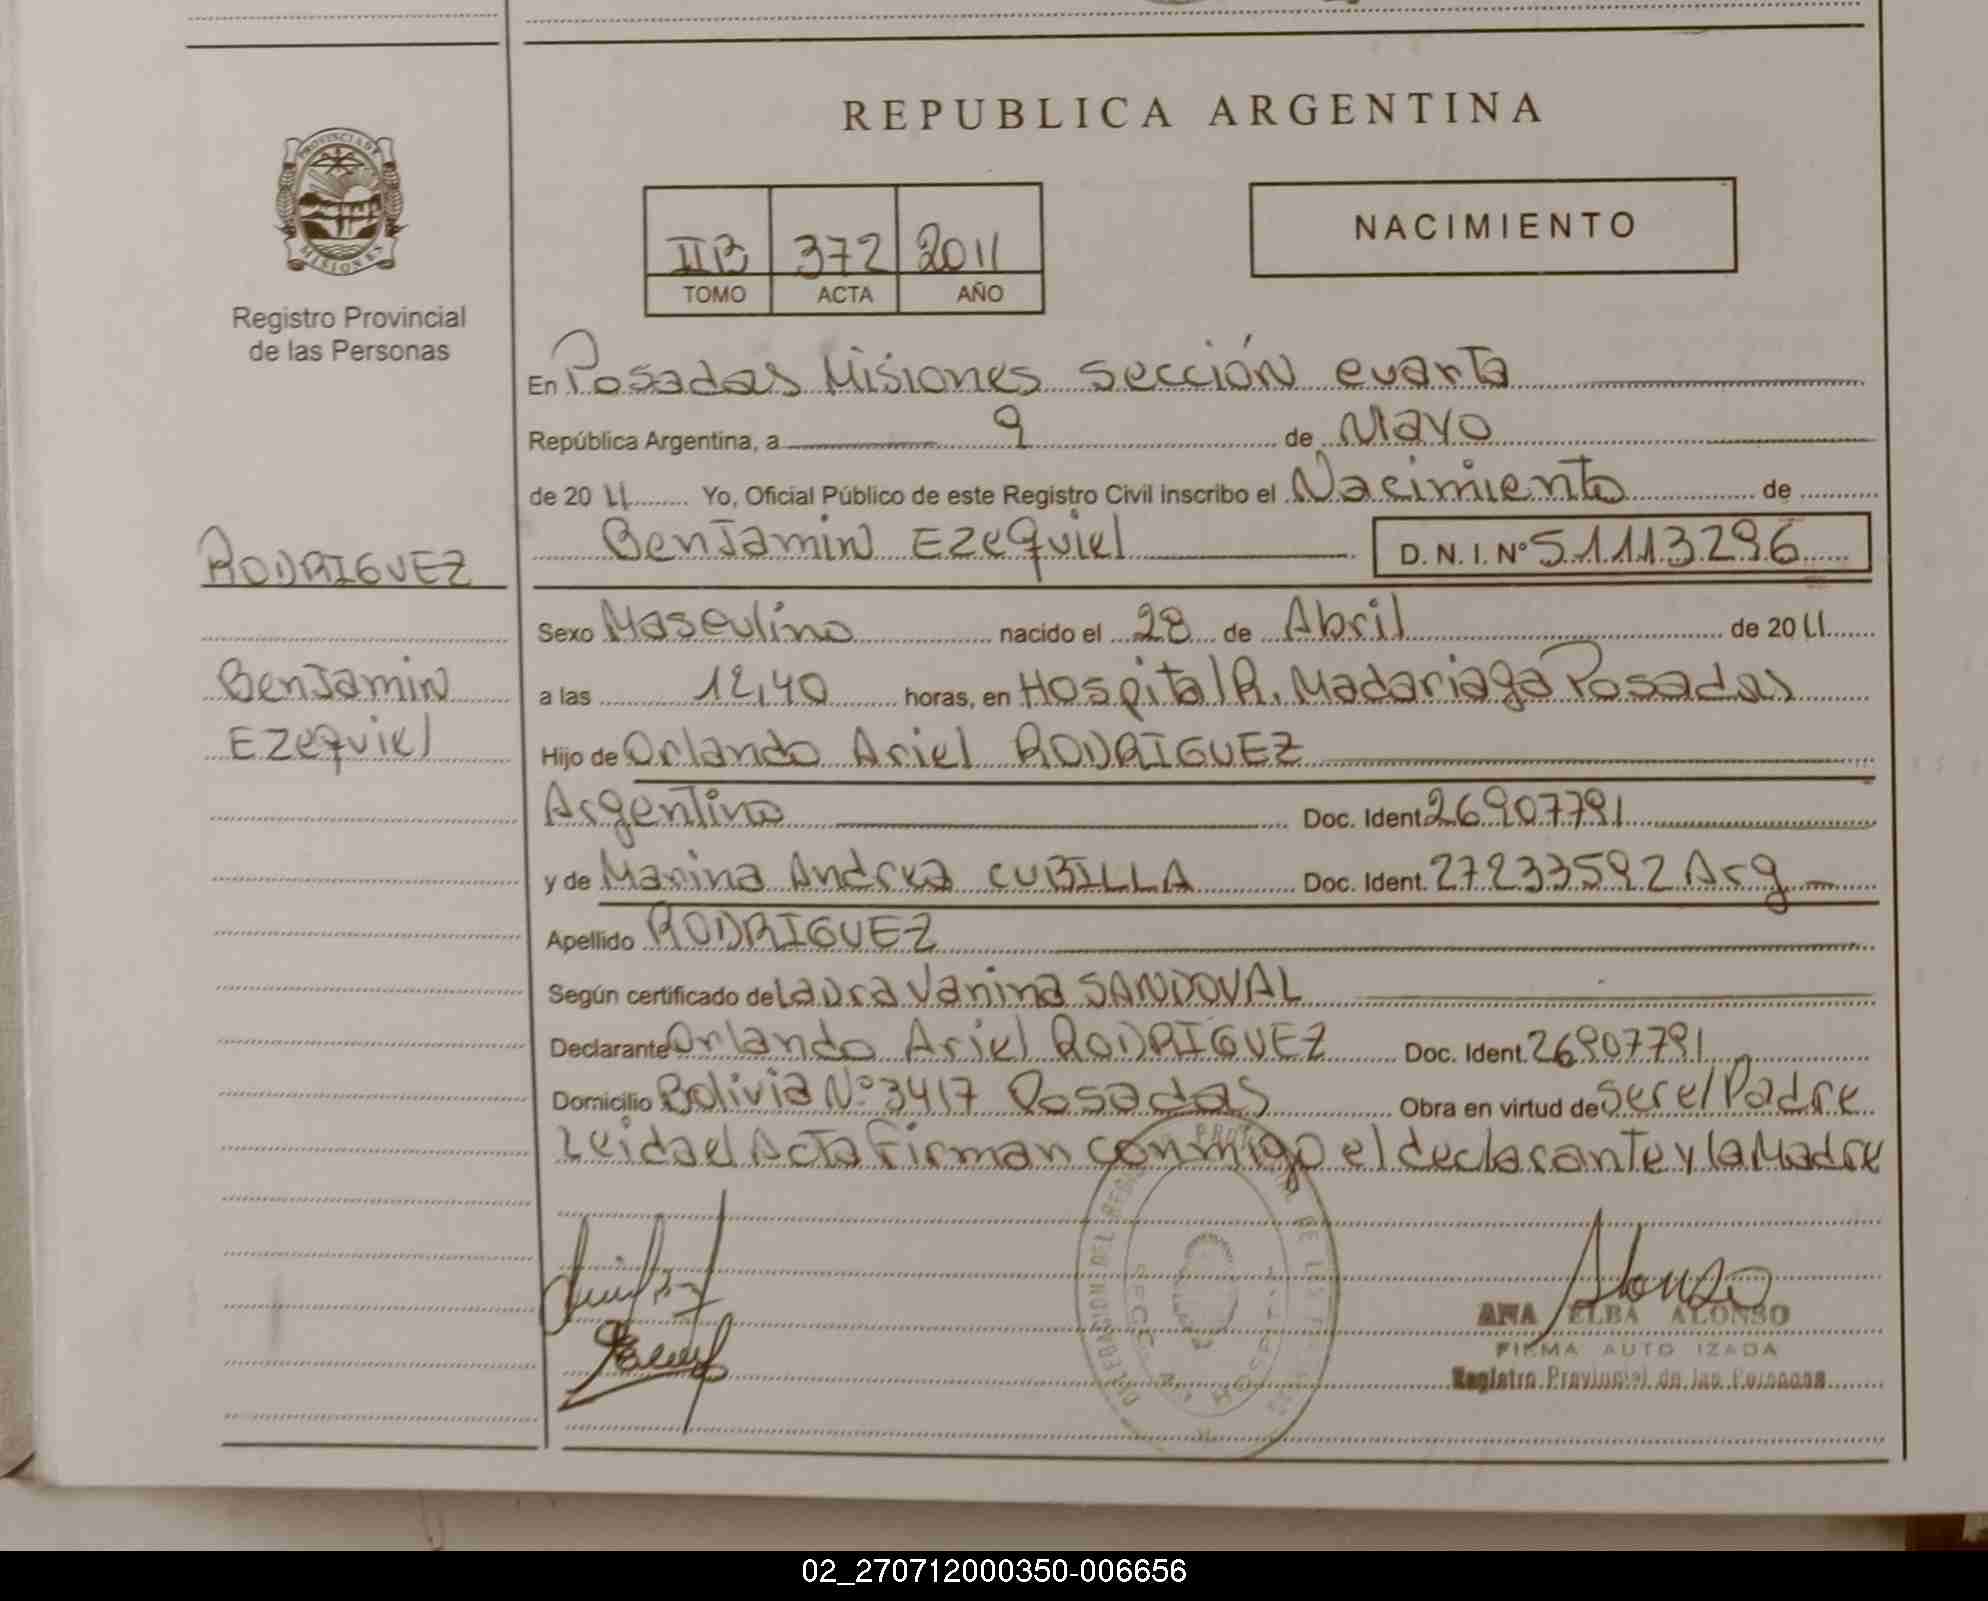 REPUBLICA ARGENTINA
PROVINCIA DE MISIONES
Registro Provincial
de las Personas
IIB 372 2011
TOMO ACTA AÑO
NACIMIENTO
En Posadas Misiones sección cuarta
República Argentina, a 9 de Mayo
de 2011 Yo, Oficial Público de este Registro Civil inscribo el Nacimiento de
Benjamin Ezequiel D. N. I. Nº 51113296
RODRIGUEZ
Benjamin
Ezequiel
Sexo Masculino nacido el 28 de Abril de 2011
a las 12,40 horas, en Hospital R. Madariaga Posadas
Hijo de Orlando Ariel RODRIGUEZ
Argentino Doc. Ident. 26907791
y de Marina Andrea CUBILLA Doc. Ident. 27233592 Arg
Apellido RODRIGUEZ
Según certificado de Laura Vanina SANDOVAL
Declarante Orlando Ariel RODRIGUEZ Doc. Ident. 26907791
Domicilio Bolivia Nº 3417 Posadas Obra en virtud de ser el Padre
Leida el Acta firman conmigo el declarante y la Madre
Alonso
ANA ELBA ALONSO
FIRMA AUTORIZADA
Registro Provincial de las Personas
02_270712000350-006656